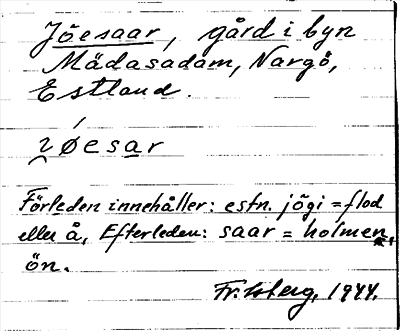 Jõesaar, gård i byn
Mädasadam, Nargö,
Estland.
ɩ̯øesar
Förleden innehåller: estn. jõgi = flod
eller å, Efterleden: saar = holmen,
ön.
1944.